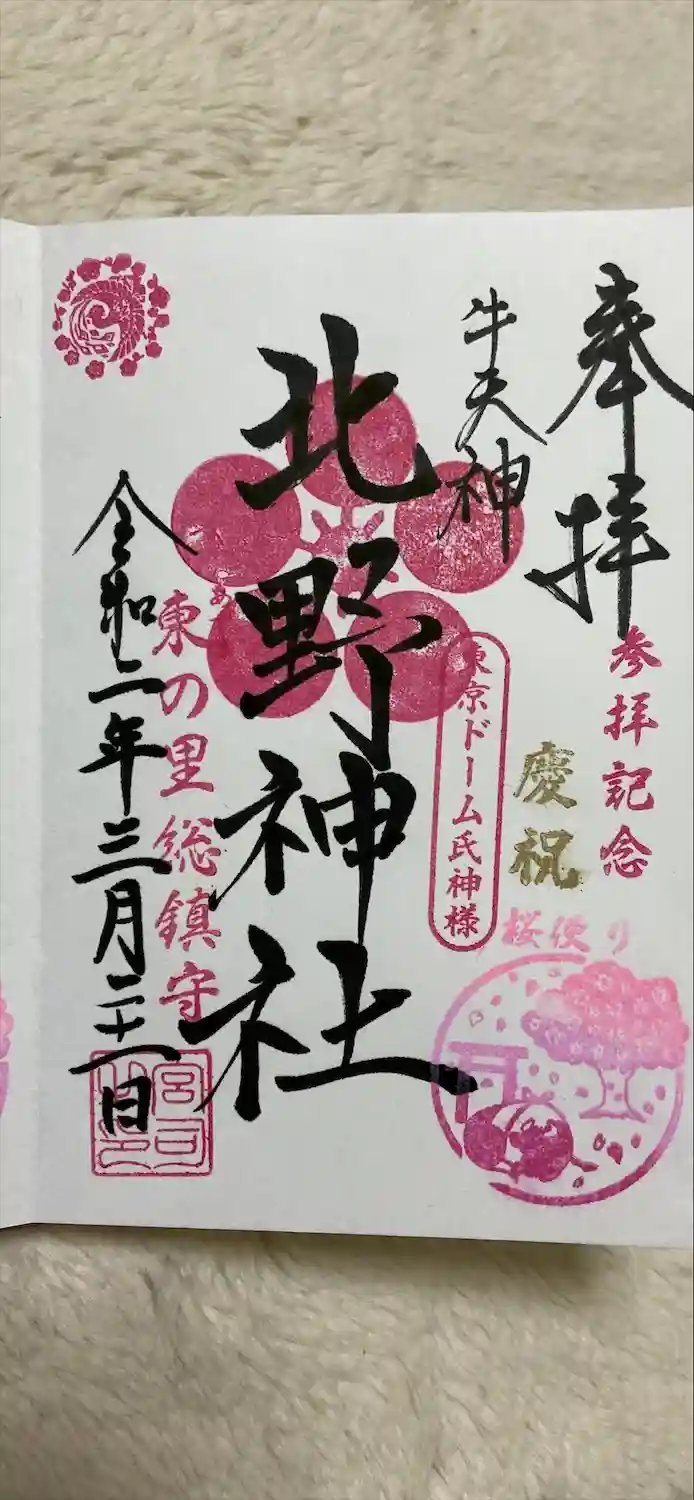 奉拝
参拝記念
慶祝
桜便り
牛天神
東京ドーム氏神様
北野神社
あ
東の里総鎮守
令和二年三月二十一日
宮司